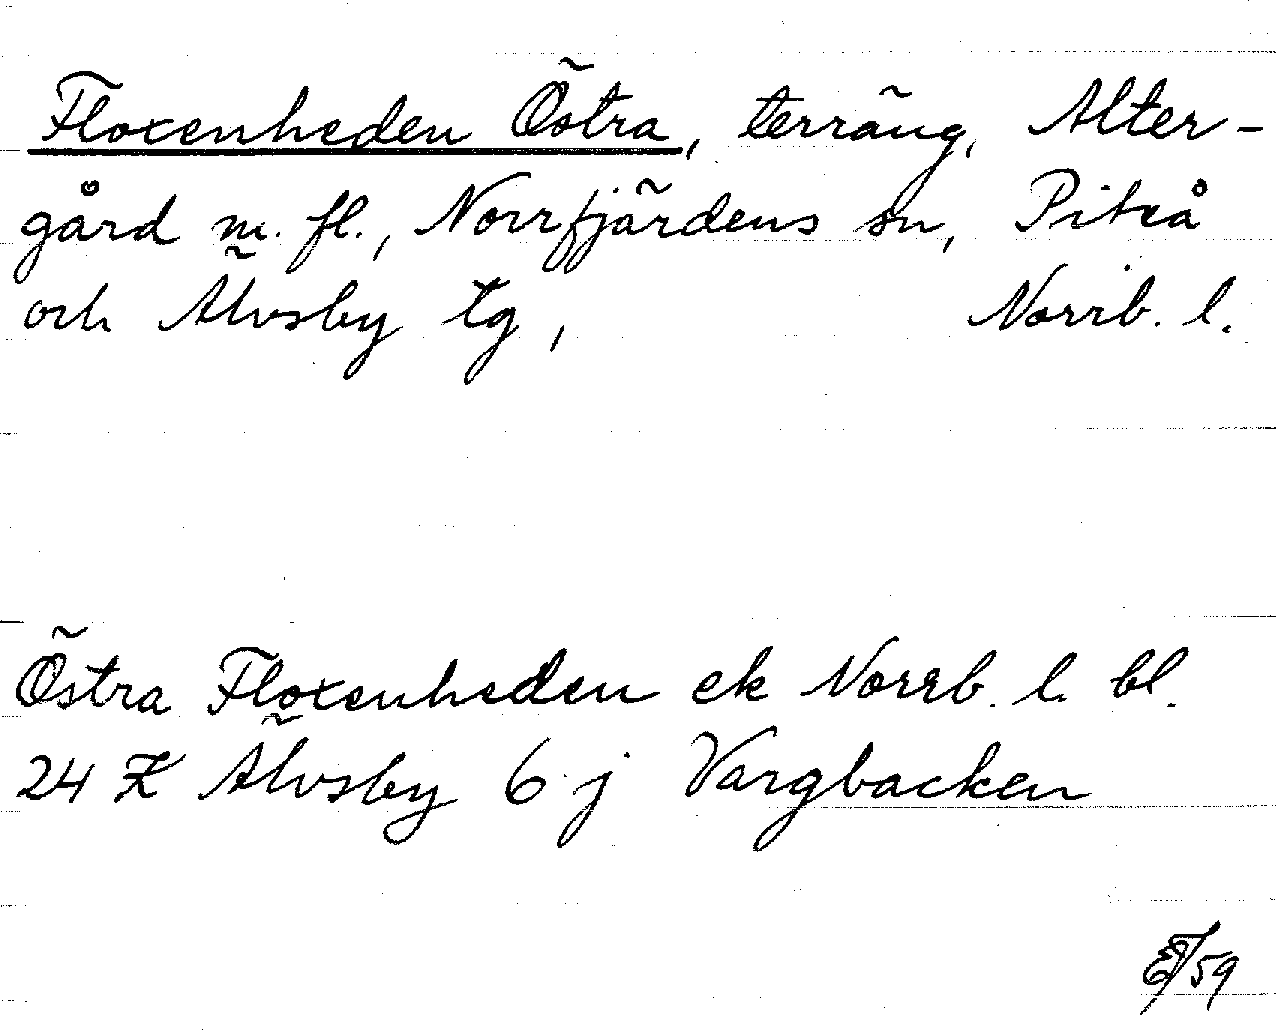 Floxenheden Östra, terräng, Alter-
gård m. fl., Norrfjärdens sn, Piteå
och Älvsby tg, Norrb. l.
Östra Floxenheden ek Norrb. l. bl.
24 K Älvsby 6 j Vargbacken
/59